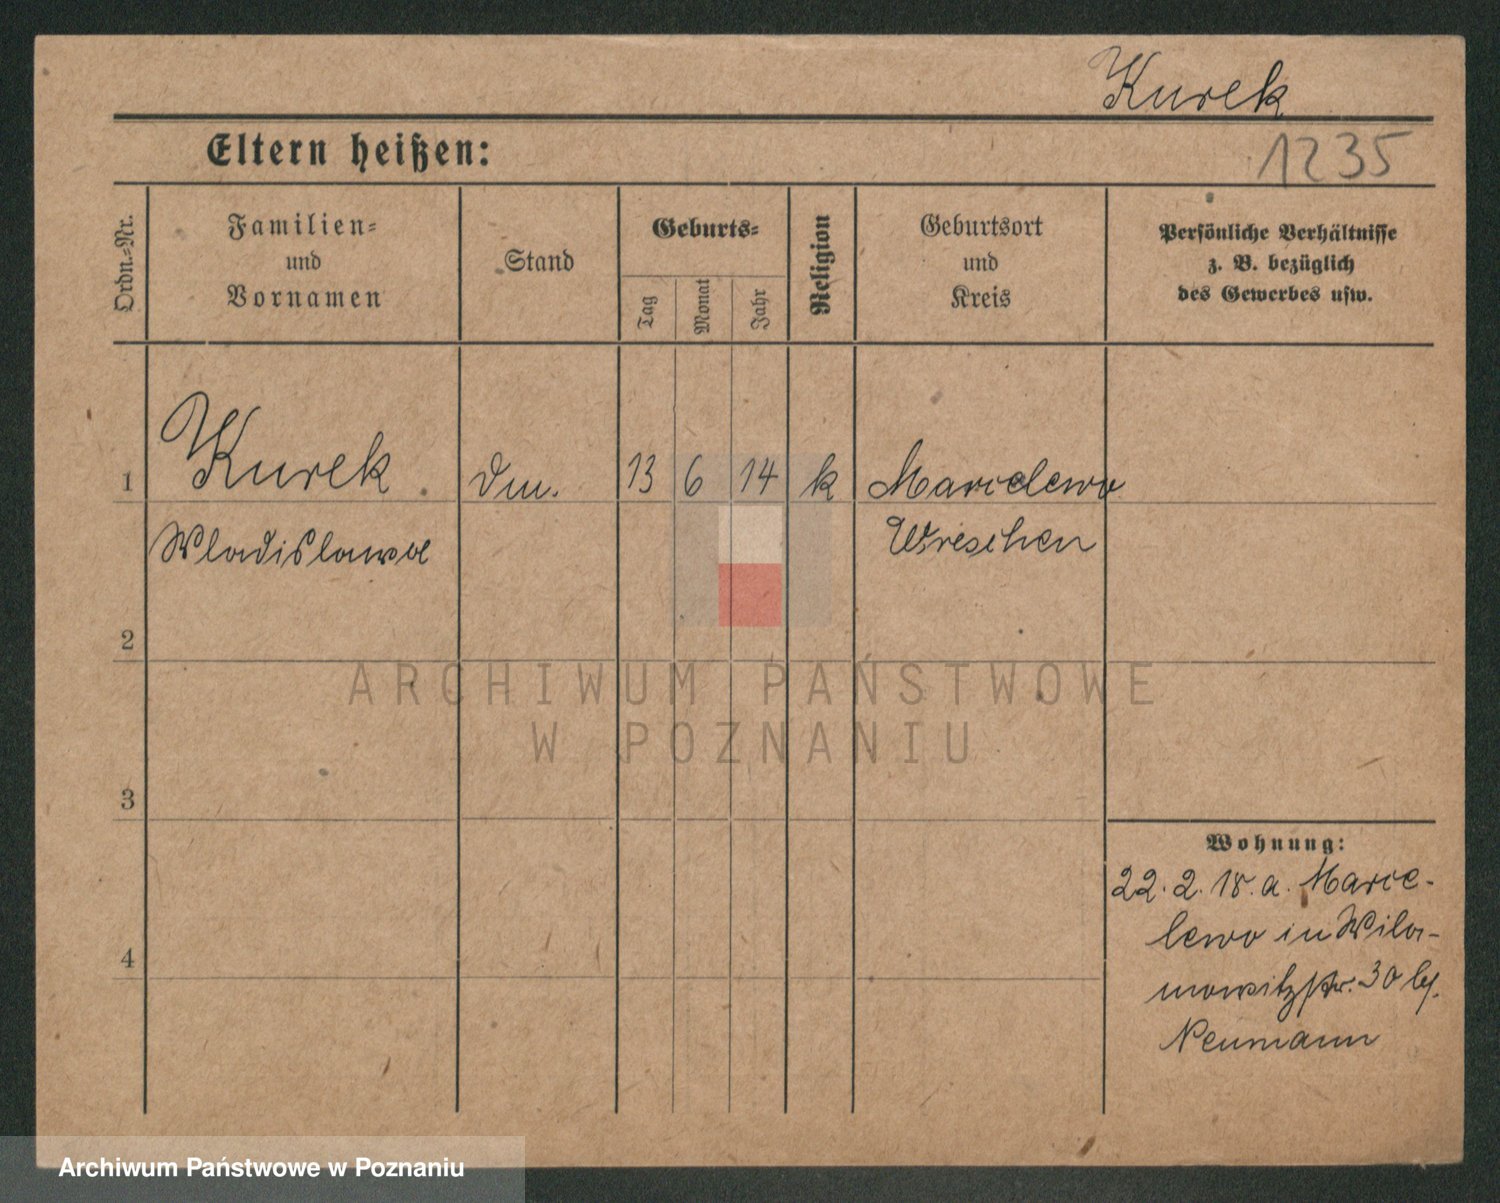 Kurek
Eltern heißen:
1235
Ordn.-Nr.
Familien-
und
Vornamen
Stand
Geburts-
Tag
Monat
Jahr
Religion
Geburtsort
und
Kreis
Persönliche Verhältnisse
z. B. bezüglich
des Gewerbes usw.
1 Kurek 13 6 14 k Marcelewo
Wladislawa Wreschen
2
ARCHIWUM PAŃSTWOWE
W POZNANIU
3
Wohnung:
22. 2. 18. a. Marce-
lewo in Wila-
mowitzstr. 30 bj.
4
Neumann
Archiwum Państwowe w Poznaniu